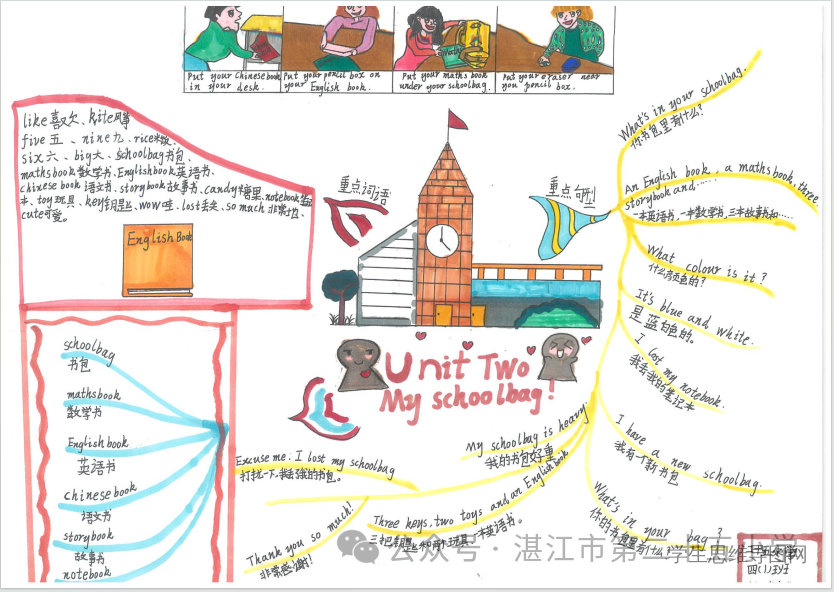 Put your Chinese book
in your desk.
Put your pencil box on
your English book.
Put your maths book
under your schoolbag.
Put your eraser near
your pencil box.
like 喜欢、kite 风筝
five 五、nine 九、rice 米饭、
six 六、big 大、schoolbag 书包、
maths book 数学书、English book 英语书、
chinese book 语文书、storybook 故事书、candy 糖果、notebook 笔记
本、toy 玩具、key 钥匙、wow 哇、lost 丢失、so much 非常地、
cute 可爱。
English Book
重点词语
重点句型
What's in your schoolbag.
你书包里有什么?
An English book, a maths book, three
storybook and......
一本英语书,一本数学书,三本故事书和......
What colour is it?
什么颜色的?
It's blue and white.
是蓝白色的。
I lost my notebook.
我丢我的笔记本
I have a new schoolbag.
我有一个新书包
What's in your bag?
你的书包里有什么?
Unit Two
My schoolbag!
schoolbag
书包
maths book
数学书
English book
英语书
chinese book
语文书
storybook
故事书
notebook
My schoolbag is heavy.
我的书包好重
Excuse me. I lost my schoolbag
打扰一下,我丢了我的书包。
Three keys, two toys and an English book
Thank you so much!
非常感谢!
公众号·湛江市第二十五小学
学生思维导图网